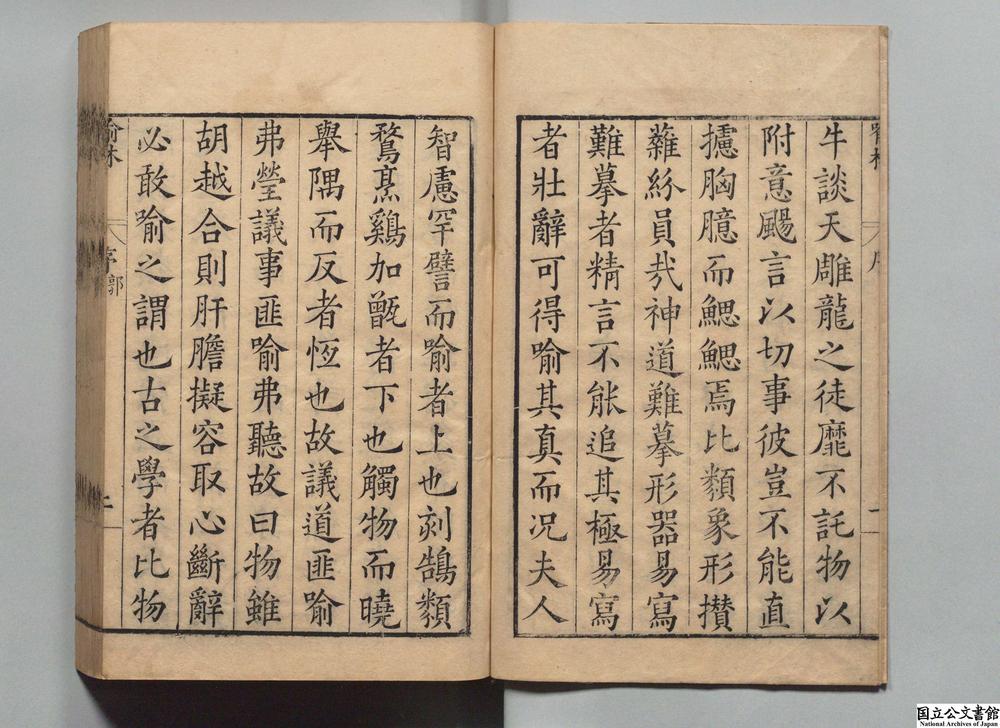 牛談天雕龍之徒靡不託物以
附意颺言以切事彼豈不能直
攄胸臆而鰓鰓焉比類象形攢
蕥紛員㢤神道難摹形器易寫
難摹者精言不能追其極易寫
者壯辭可得喻其真而況夫人
智慮罕譬而喻者上也刻鵠類
鶩烹鷄加甑者下也觸物而曉
舉隅而反者恆也故議道匪喻
弗瑩議事匪喻弗聽故曰物雖
胡越合則肝膽擬容取心斷辭
必敢喻之謂也古之學者比物
喻林
序
郭
二
国立公文書館
National Archives of Japan